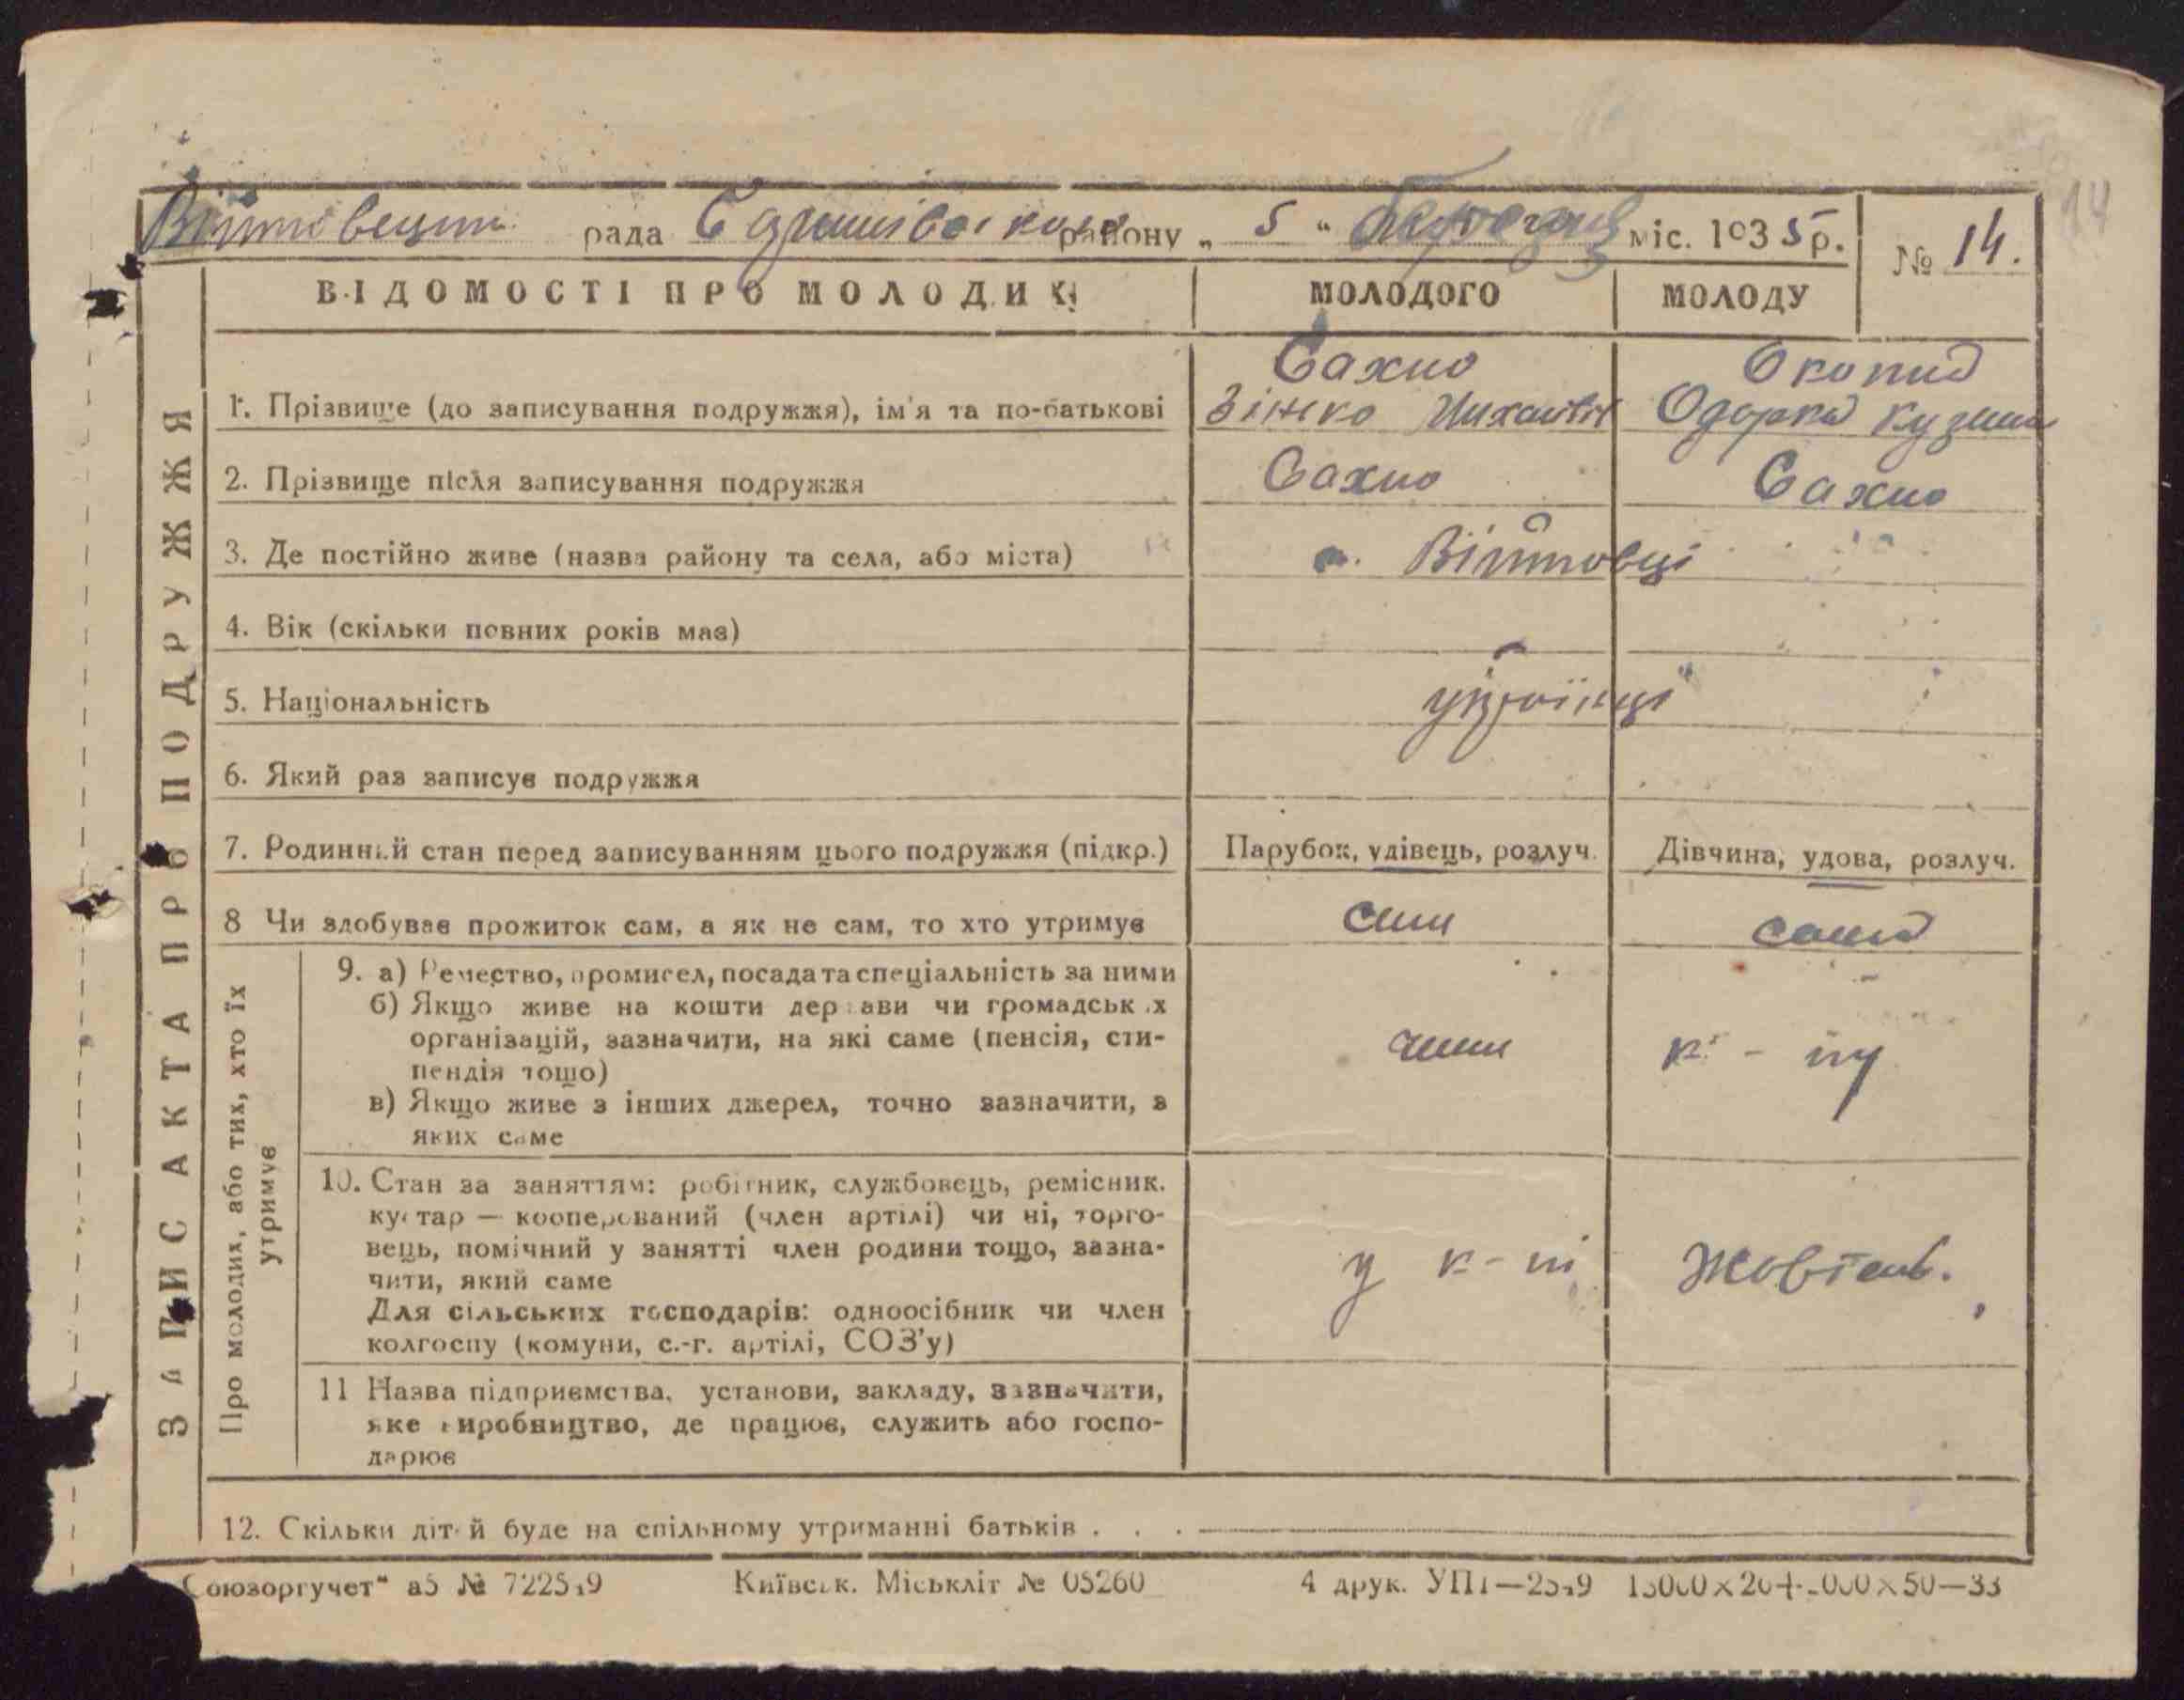 рада району „ 5 “ березця міс. 1935 р. № 14.
14
ВІДОМОСТІ ПРО МОЛОДИХ МОЛОДОГО МОЛОДУ
ЗАПИС АКТА ПРО ПОДРУЖЖЯ
Сахно
1. Прізвище (до записування подружжя), ім'я та по-батькові Зінько Одарка
2. Прізвище після записування подружжя Сахно Сахно
3. Де постійно живе (назва району та села, або міста) Війтовці
4. Вік (скільки повних років має)
5. Національність українці
6. Який раз записує подружжя
7. Родинний стан перед записуванням цього подружжя (підкр.) Парубок, удівець, розлуч. Дівчина, удова, розлуч.
8 Чи здобуває прожиток сам, а як не сам, то хто утримує сам сама
Про молодих, або тих, хто їх
утримує
9. а) Ремество, промисел, посада та спеціальність за ними
б) Якщо живе на кошти держави чи громадських
організацій, зазначити, на які саме (пенсія, сти-
пендія тощо)
в) Якщо живе з інших джерел, точно зазначити, з
яких саме
член к-пу
10. Стан за заняттям: робітник, службовець, ремісник.
кустар — кооперований (член артілі) чи ні, торго-
вець, помічний у занятті член родини тощо, зазна-
чити, який саме
Для сільських господарів: одноосібник чи член
колгоспу (комуни, с.-г. артілі, СОЗ'у)
у к-пі Жовтень.
11 Назва підприємства, установи, закладу, зазначити,
яке виробництво, де працює, служить або госпо-
дарює
12. Скільки дітей буде на спільному утриманні батьків . . .
Союзоргучет“ а5 № Київськ. Міськліт № 05260 4 друк.